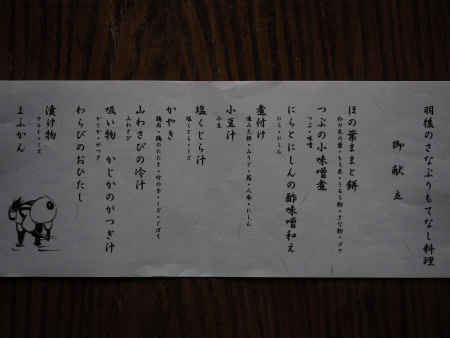 羽後のさなぶりもてなし料理
御献立
ほの葉ままと餅
つぶの小味噌煮
つぶ・味噌
にらとにしんの酢味噌和え
にら・にしん
煮付け
小豆汁
小豆
塩くじら汁
塩くじら・ミズ
かやき
山わさびの冷汁
山わさび
吸い物 かじかのがつぎ汁
かじか・がつぎ
わらびのおひたし
漬け物
よふかん